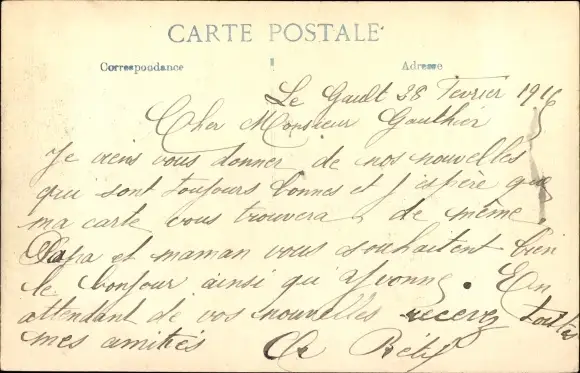 CARTE POSTALE
Correspondance Adresse
Le Gault 28 Fevrier 1916
Cher Monsieur Gauthier
Je viens vous donner de nos nouvelles
qui sont toujours bonnes et j espère que
ma carte vous trouvera de même
Papa et maman vous souhaitent bien
le bonjour ainsi qu Yvonne. En
attendant de vos nouvelles recevez toutes
mes amitiés